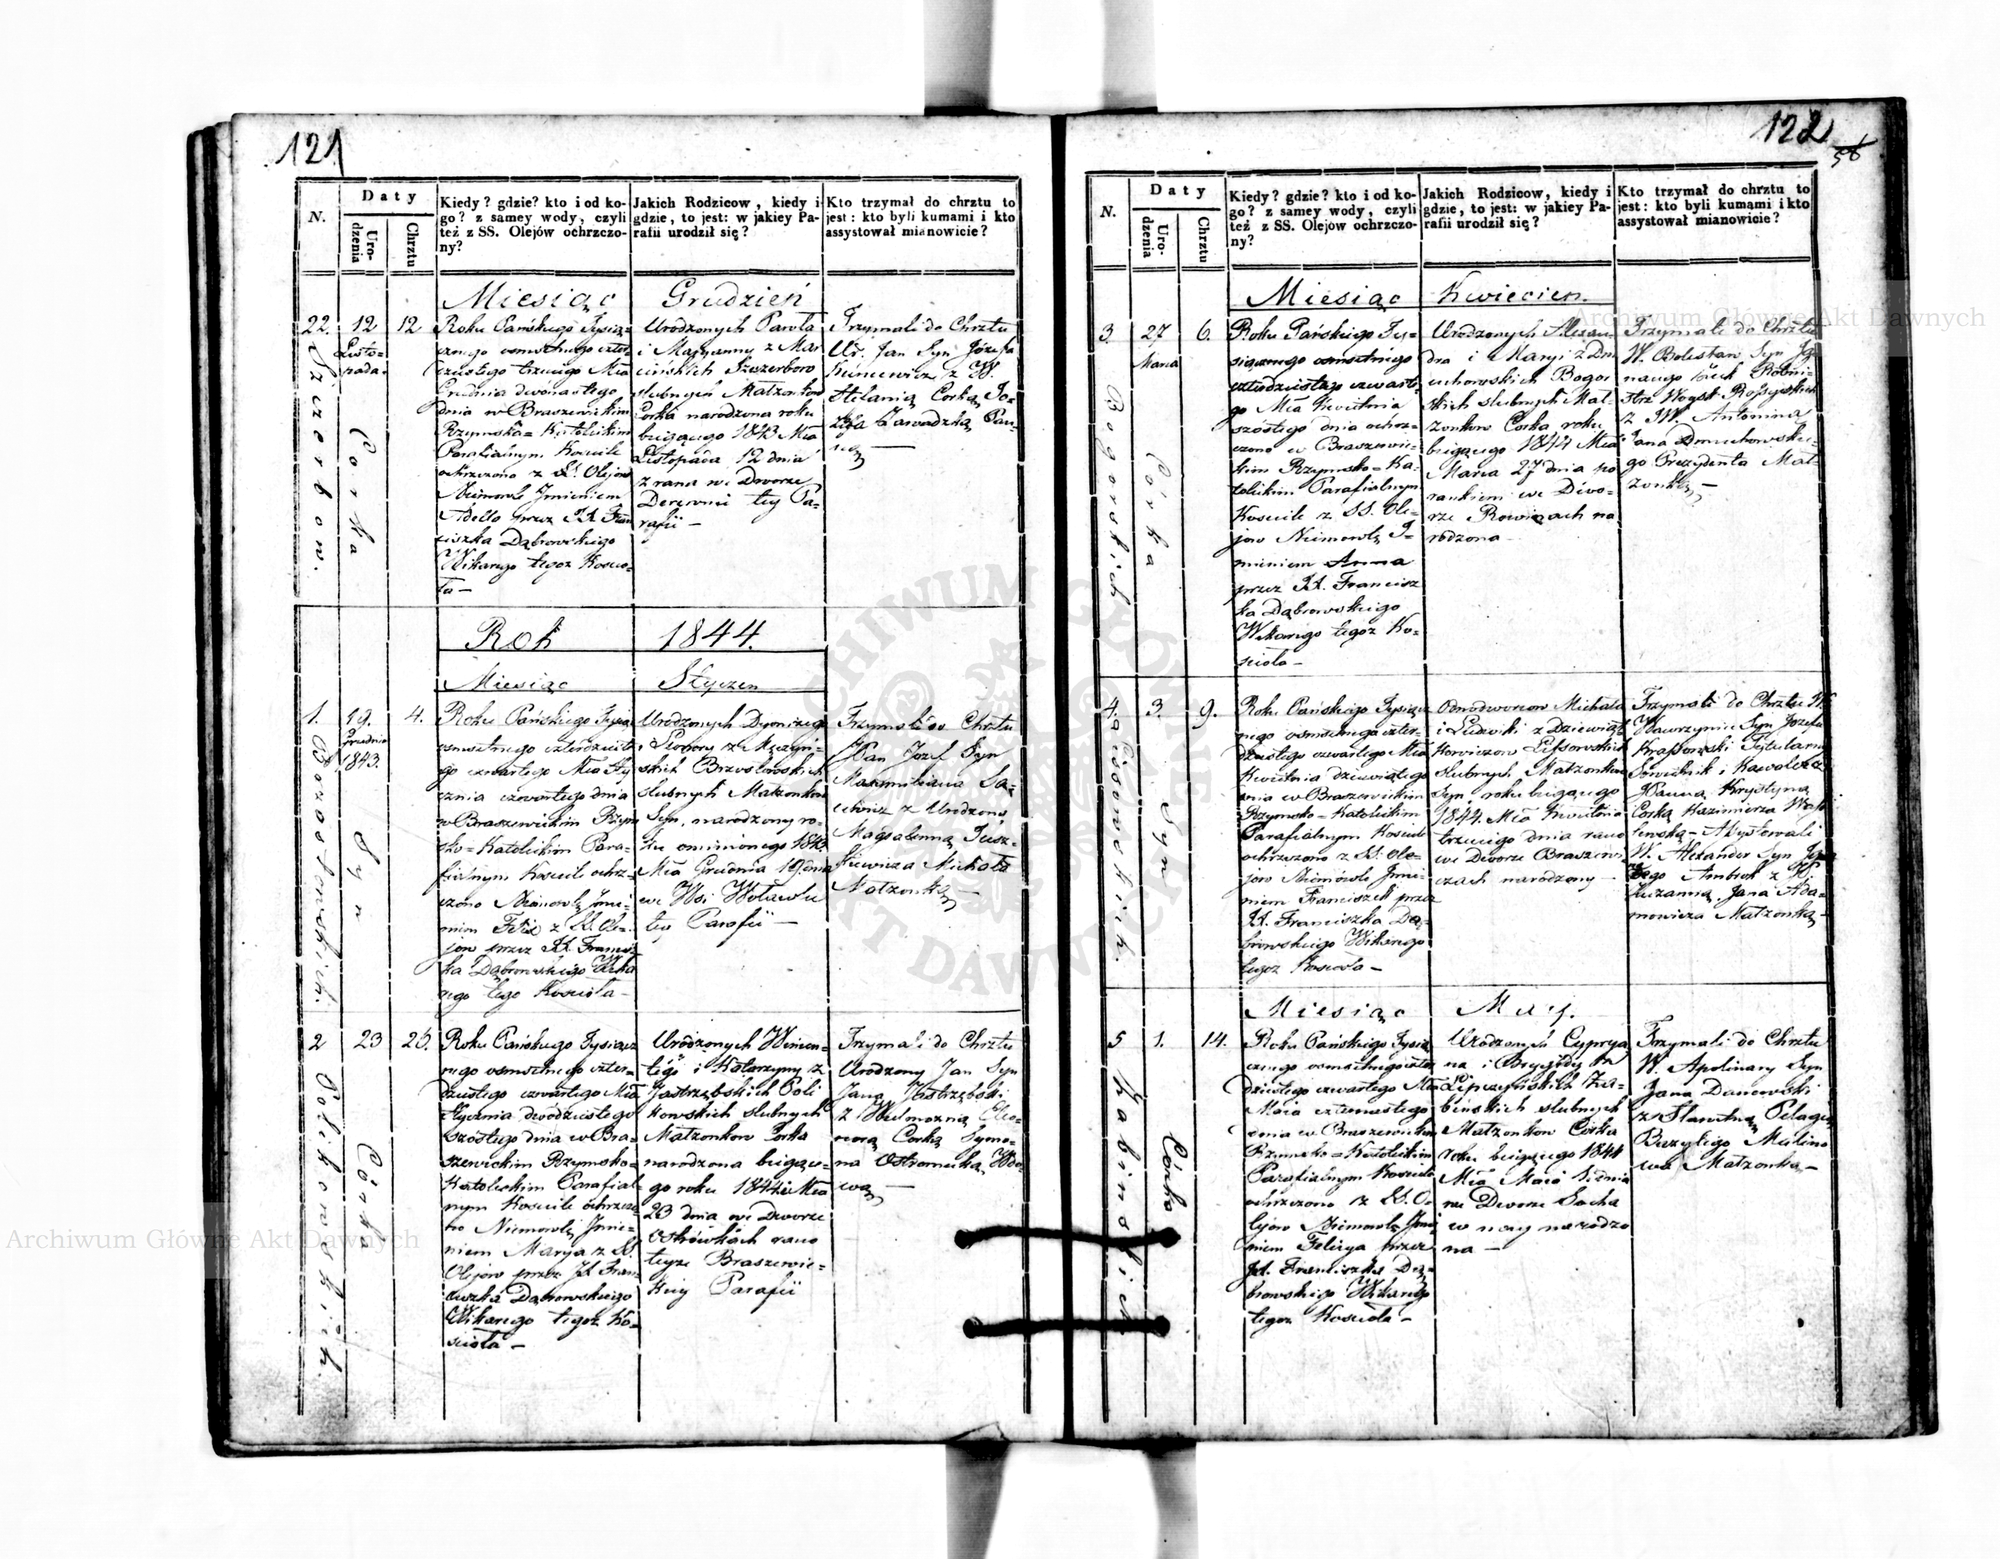 121
N.
Daty
Uro-
dzenia
Chrztu
Kiedy? gdzie? kto i od ko-
go? z samey wody, czyli
też z SS. Olejów ochrzczo-
ny?
Jakich Rodzicow, kiedy i
gdzie, to jest: w jakiey Pa-
rafii urodził się?
Kto trzymał do chrztu to
jest: kto byli kumami i kto
assystował mianowicie?
Miesiąc Grudzień
22.
12
Listo-
pada.
12
Szczerbow.
Corka
Roku Pańskiego Tysią-
cznego osmsetnego czter-
dziestego trzeciego Mca
Grudnia dwónastego
dnia w Braszewickim
Rzymsko=Katolickim
Parafialnym Kosciele
ochrzczono z SS. Olejow
Niemowle Imieniem
Adella przez JX. Fran
ciszka Dąbrowskiego
Wikarego tegoz Koscio-
ła —
Urodzonych Pawła
i Maryanny z Mar
cińskich Szczerbow
slubnych Małzonkow
Corka narodzona roku
bieżącego 1843 Mca
Listopada 12 dnia
z rana we Dworze
Derewni tey Pa-
rafii —
Trzymali do Chrztu
Ur. Jan Syn Józefa
z W.
Helanią Corką Jo-
zefa Zawadzką Pan-
ną —
Rok 1844.
Miesiąc Styczen
1.
19.
Grudnia
1843.
4.
Brzostowskich.
Syn
Roku Pańskiego Tysiąc
osmsetnego czterdzieste
go czwartego Mca Sty
cznia czwartego dnia
w Braszewickim Rzym
sko=Katolickim Para-
fialnym Kosciele ochrz-
czono Niemowle Imie-
niem Felix z SS. Ole-
jow przez JX. Francisz
ka Dąbrowskiego Wika
rego tego Kosciola —
Urodzonych Dyonizego
i Teodory z Męczyń-
skich Brzostowskich
slubnych Malzonkow
Syn, narodzony ro-
ku ominionego 1843
Mca Grudnia 19 dnia
we Wsi Woławlu
tey Parafii —
Trzymali do Chrztu
Pan Jozef Syn
Maxmiliana Sa-
z Urodzoną
Magdaleną Jusz-
kiewicza Michala
Malzonką —
2
23
26.
Polikowskich.
Córka
Roku Pańskiego Tysiącz
nego osmsetnego czter-
dziestego czwartego Mca
Stycznia dwódziestego
szóstego dnia w Bra-
szewickim Rzymsko-
Katolickim Parafial-
nym Kosciele ochrzczo-
no Niemowle Imie-
niem Marya z SS.
Olejow przez JX. Fran-
ciszka Dąbrowskiego
Wikarego tegoz Ko-
sciola —
Urodzonych Wincen-
tégo i Katarzyny z
Jastrzębskich Poli
kowskich slubnych
Malzonkow Corka
narodzona bieżące-
go roku 1844 Mca
23 dnia we Dworze
Ostrówkach rano
teyze Braszewic-
kiey Parafii
Trzymali do Chrztu
Urodzony Jan Syn
Jana Jastrzębski
z Wielmozną Eleo-
norą Corką Symo-
na Ostromecką Wdo-
wą —
122
56
N.
Daty
Uro-
dzenia
Chrztu
Kiedy? gdzie? kto i od ko-
go? z samey wody, czyli
też z SS. Olejów ochrzczo-
ny?
Jakich Rodzicow, kiedy i
gdzie, to jest: w jakiey Pa-
rafii urodził się?
Kto trzymał do chrztu to
jest: kto byli kumami i kto
assystował mianowicie?
Miesiąc Kwiecien.
3.
27
Marca
6.
Bogorskich
Córka
Roku Pańskiego Ty-
siącznego osmsetnego
czterdziestego czwarte-
go Mca Kwietnia
szostego dnia ochrz-
czono w Braszewic-
kim Rzymsko=Ka-
tolickim Parafialnym
Kosciele z SS. Ole-
jow Niemowle I-
mieniem Anna
przez JX. Francisz
ka Dąbrowskiego
Wikarego tegoz Ko-
sciola —
Urodzonych Alexan
dra i Maryi z Dm
uchowskich Bogor
skich slubnych Mał-
zonkow Corka roku
bieżącego 1844 Mca
Marca 27 dnia po
rankiem we Dwo-
rze Rowinach na
rodzona —
Trzymali do Chrztu
W. Boleslaw Syn Ig-
nacego
Woysk Rossyyskich
z W. Antonina
Jana Dmuchowskie-
go Prezydenta Mal-
zonką —
4.
3.
9.
Lissowskich.
Syn
Roku Pańskiego Tysiącz
nego osmsetnego czter-
dziestego czwartego Mca
Kwietnia dziewiątego
dnia w Braszewickim
Rzymsko=Katolickim
Parafialnym Kosciele
ochrzczono z SS. Ole-
jow Niemowle Imie-
niem Franciszek przez
JX. Franciszka Dą-
browskiego Wikarego
tegoz Kosciola —
Odnodworcow Michala
i Ludwiki z Dziewiąt
kowiczow Lissowskich
slubnych Malzonkow
Syn, roku bieżącego
1844. Mca Kwietnia
trzeciego dnia rano
we Dworze Braszewi
czach narodzony —
Trzymali do Chrztu W.
Wawrzyniec Syn Jozefa
Krassowski Tytularny
Sowietnik i Kawaler z
Panną Krystyną
Corką Kazimierza
— Assystowali
W. Alexander Syn Igna
cego Ambrok z W.
Zuzanną Jana Ada-
mowicza Malzonką —
Miesiąc May.
5
1.
14.
Żabinskich
Córka
Roku Pańskiego Tysią
cznego osmsetnego czter
dziestego czwartego Mca
Maia czternastego
dnia w Braszewickim
Rzymsko=Katolickim
Parafialnym Kosciele
ochrzczono z SS. O-
lejow Niemowle Imie
niem Felicya przez
JX. Franciszka Dą-
browskiego Wikarego
tegoz Kosciola —
Urodzonych Cyprya
na i Brygidy z
Lipczyńskich Ża-
bińskich slubnych
Malzonkow Córka
roku bieżącego 1844
Mca Maia 1 dnia
we Dworze Socha
w narodzo
na —
Trzymali do Chrztu
W. Apolinary Syn
Jana Danowski
z Slawetną Pelagią
Bazylego Melino
wa Malzonką —
ARCHIWUM GŁÓWNE
AKT DAWNYCH
Archiwum Główne Akt Dawnych
Archiwum Główne Akt Dawnych